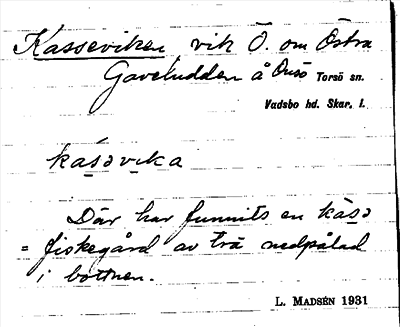 Kasseviken vik Ö. om Östra
Gaveludden å Onsö Torsö sn.
Vadsbo hd. Skar. l.
kasəvika
Där har funnits en kasə
= fiskegård av trä nedpålad
i bottnen.
L. MADSÉN 1931